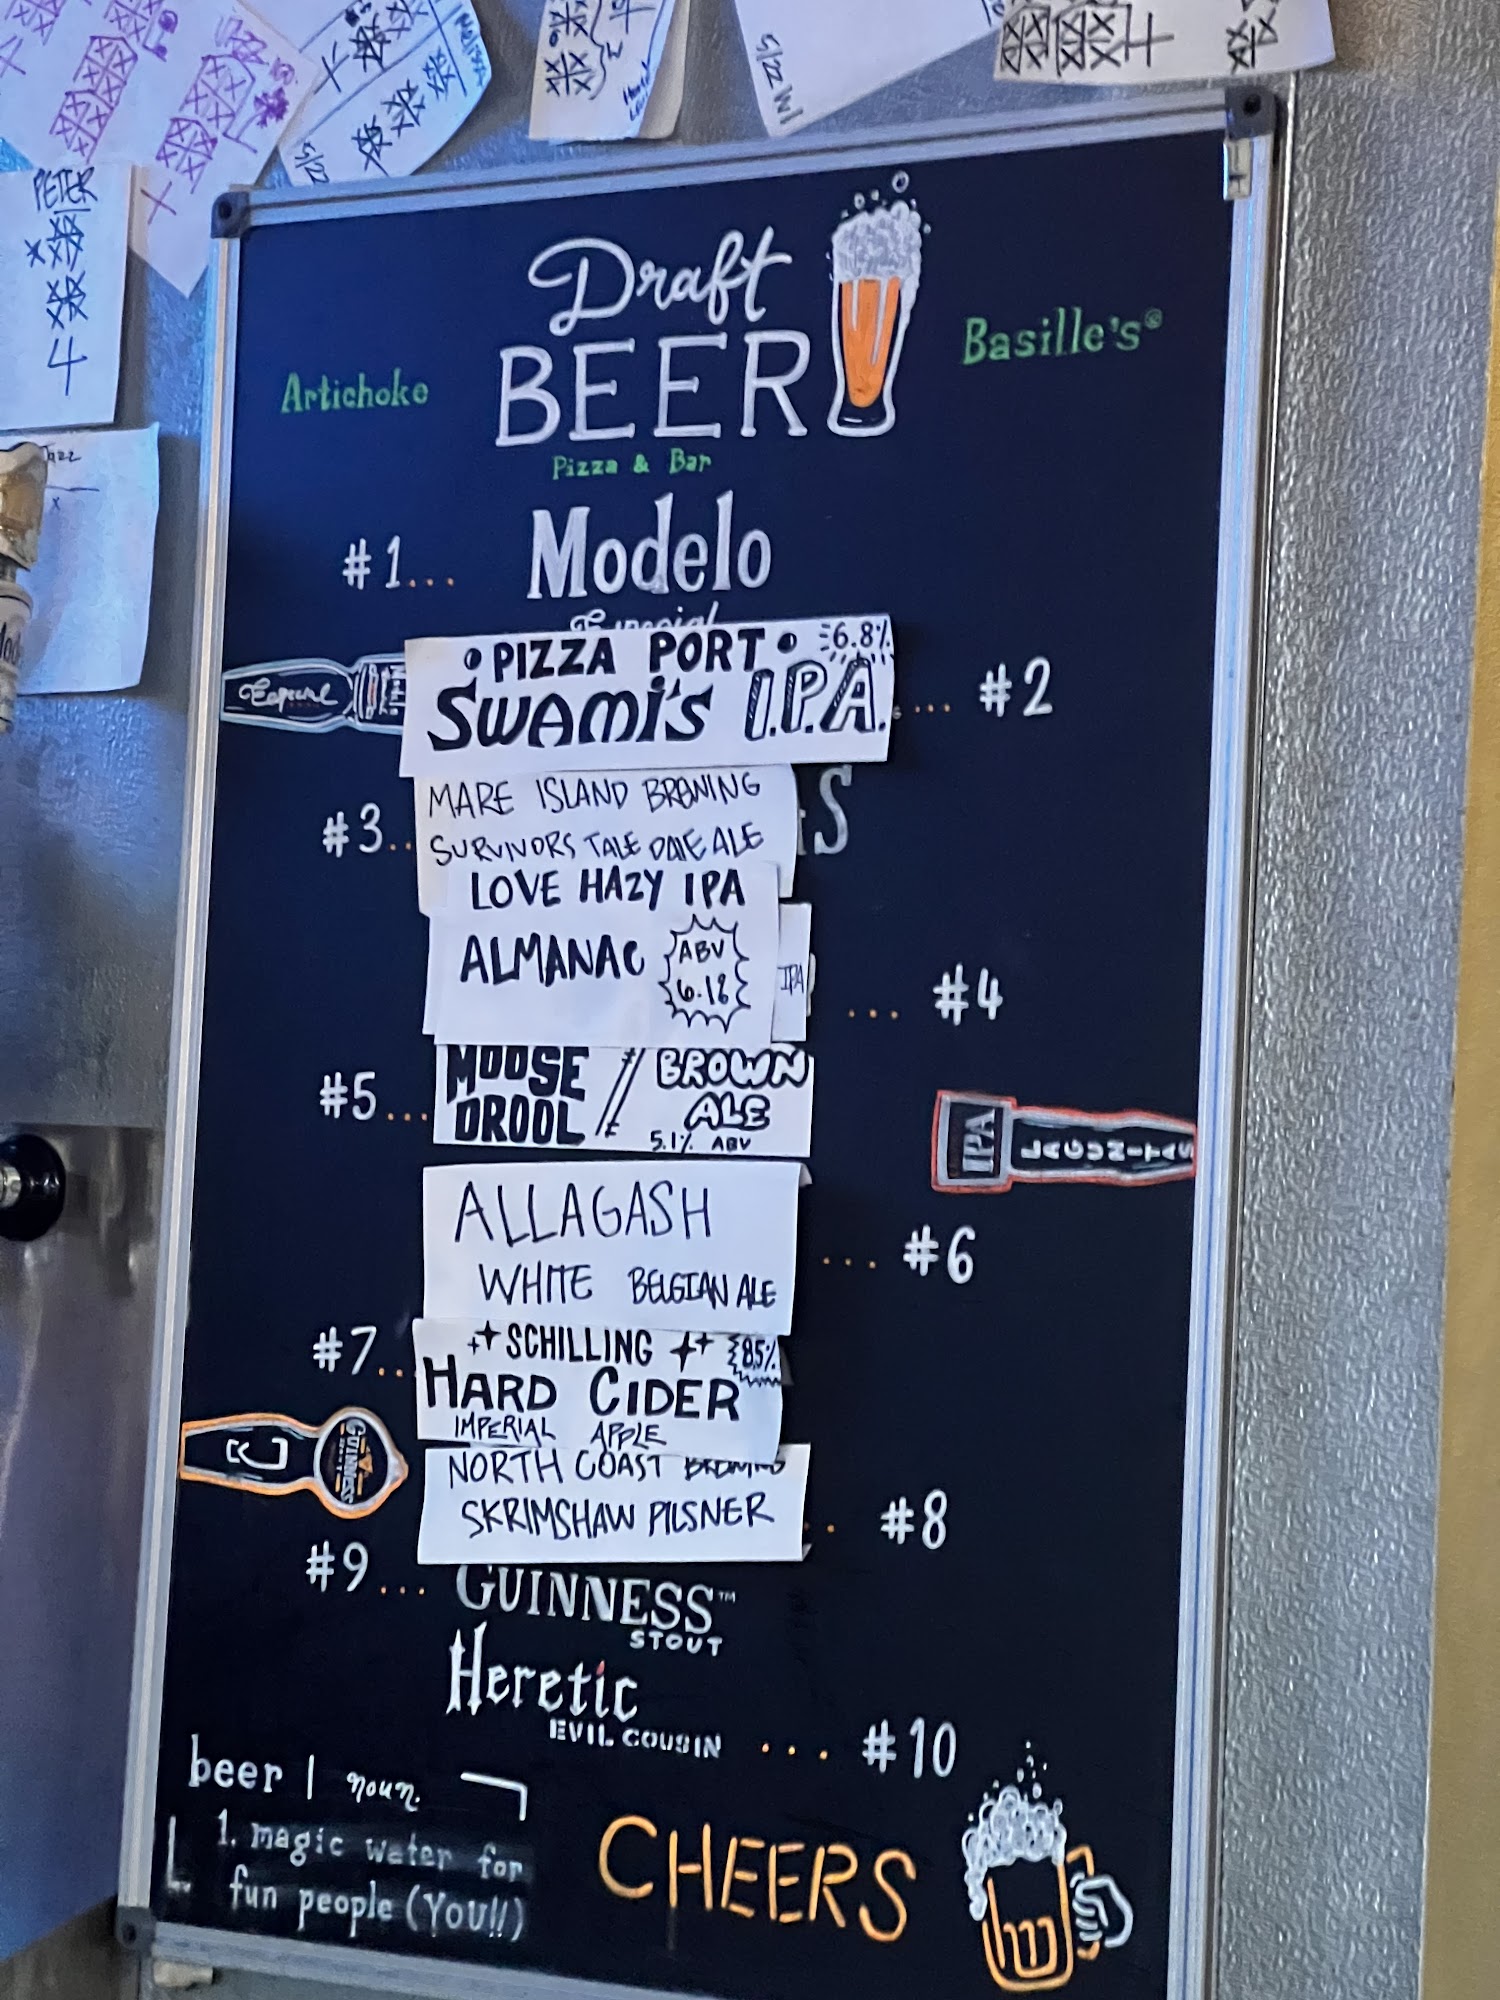 PETER
4
Jazz
5/22
Melissa
5/22 W1
Draft
BEER
Artichoke
Basille's®
Pizza & Bar
#1... Modelo
Especial
• PIZZA PORT • 6.8%
SWAMI'S I.P.A. ... #2
Especial
Modelo
S
#3.. MARE ISLAND BREWING
SURVIVORS TALE PALE ALE
LOVE HAZY IPA
ALMANAC ABV
6.1%
IPA
... #4
#5... MOOSE
DROOL // BROWN
ALE
5.1% ABV
IPA LAGUNITAS
ALLAGASH
WHITE BELGIAN ALE
... #6
#7.. SCHILLING 8.5%
HARD CIDER
IMPERIAL APPLE
GUINNESS
NORTH COAST BREWING
SKRIMSHAW PILSNER
.. #8
#9... GUINNESS™
STOUT
Heretic
EVIL COUSIN ... #10
beer | noun.
1. magic water for
fun people (YOU!!)
CHEERS